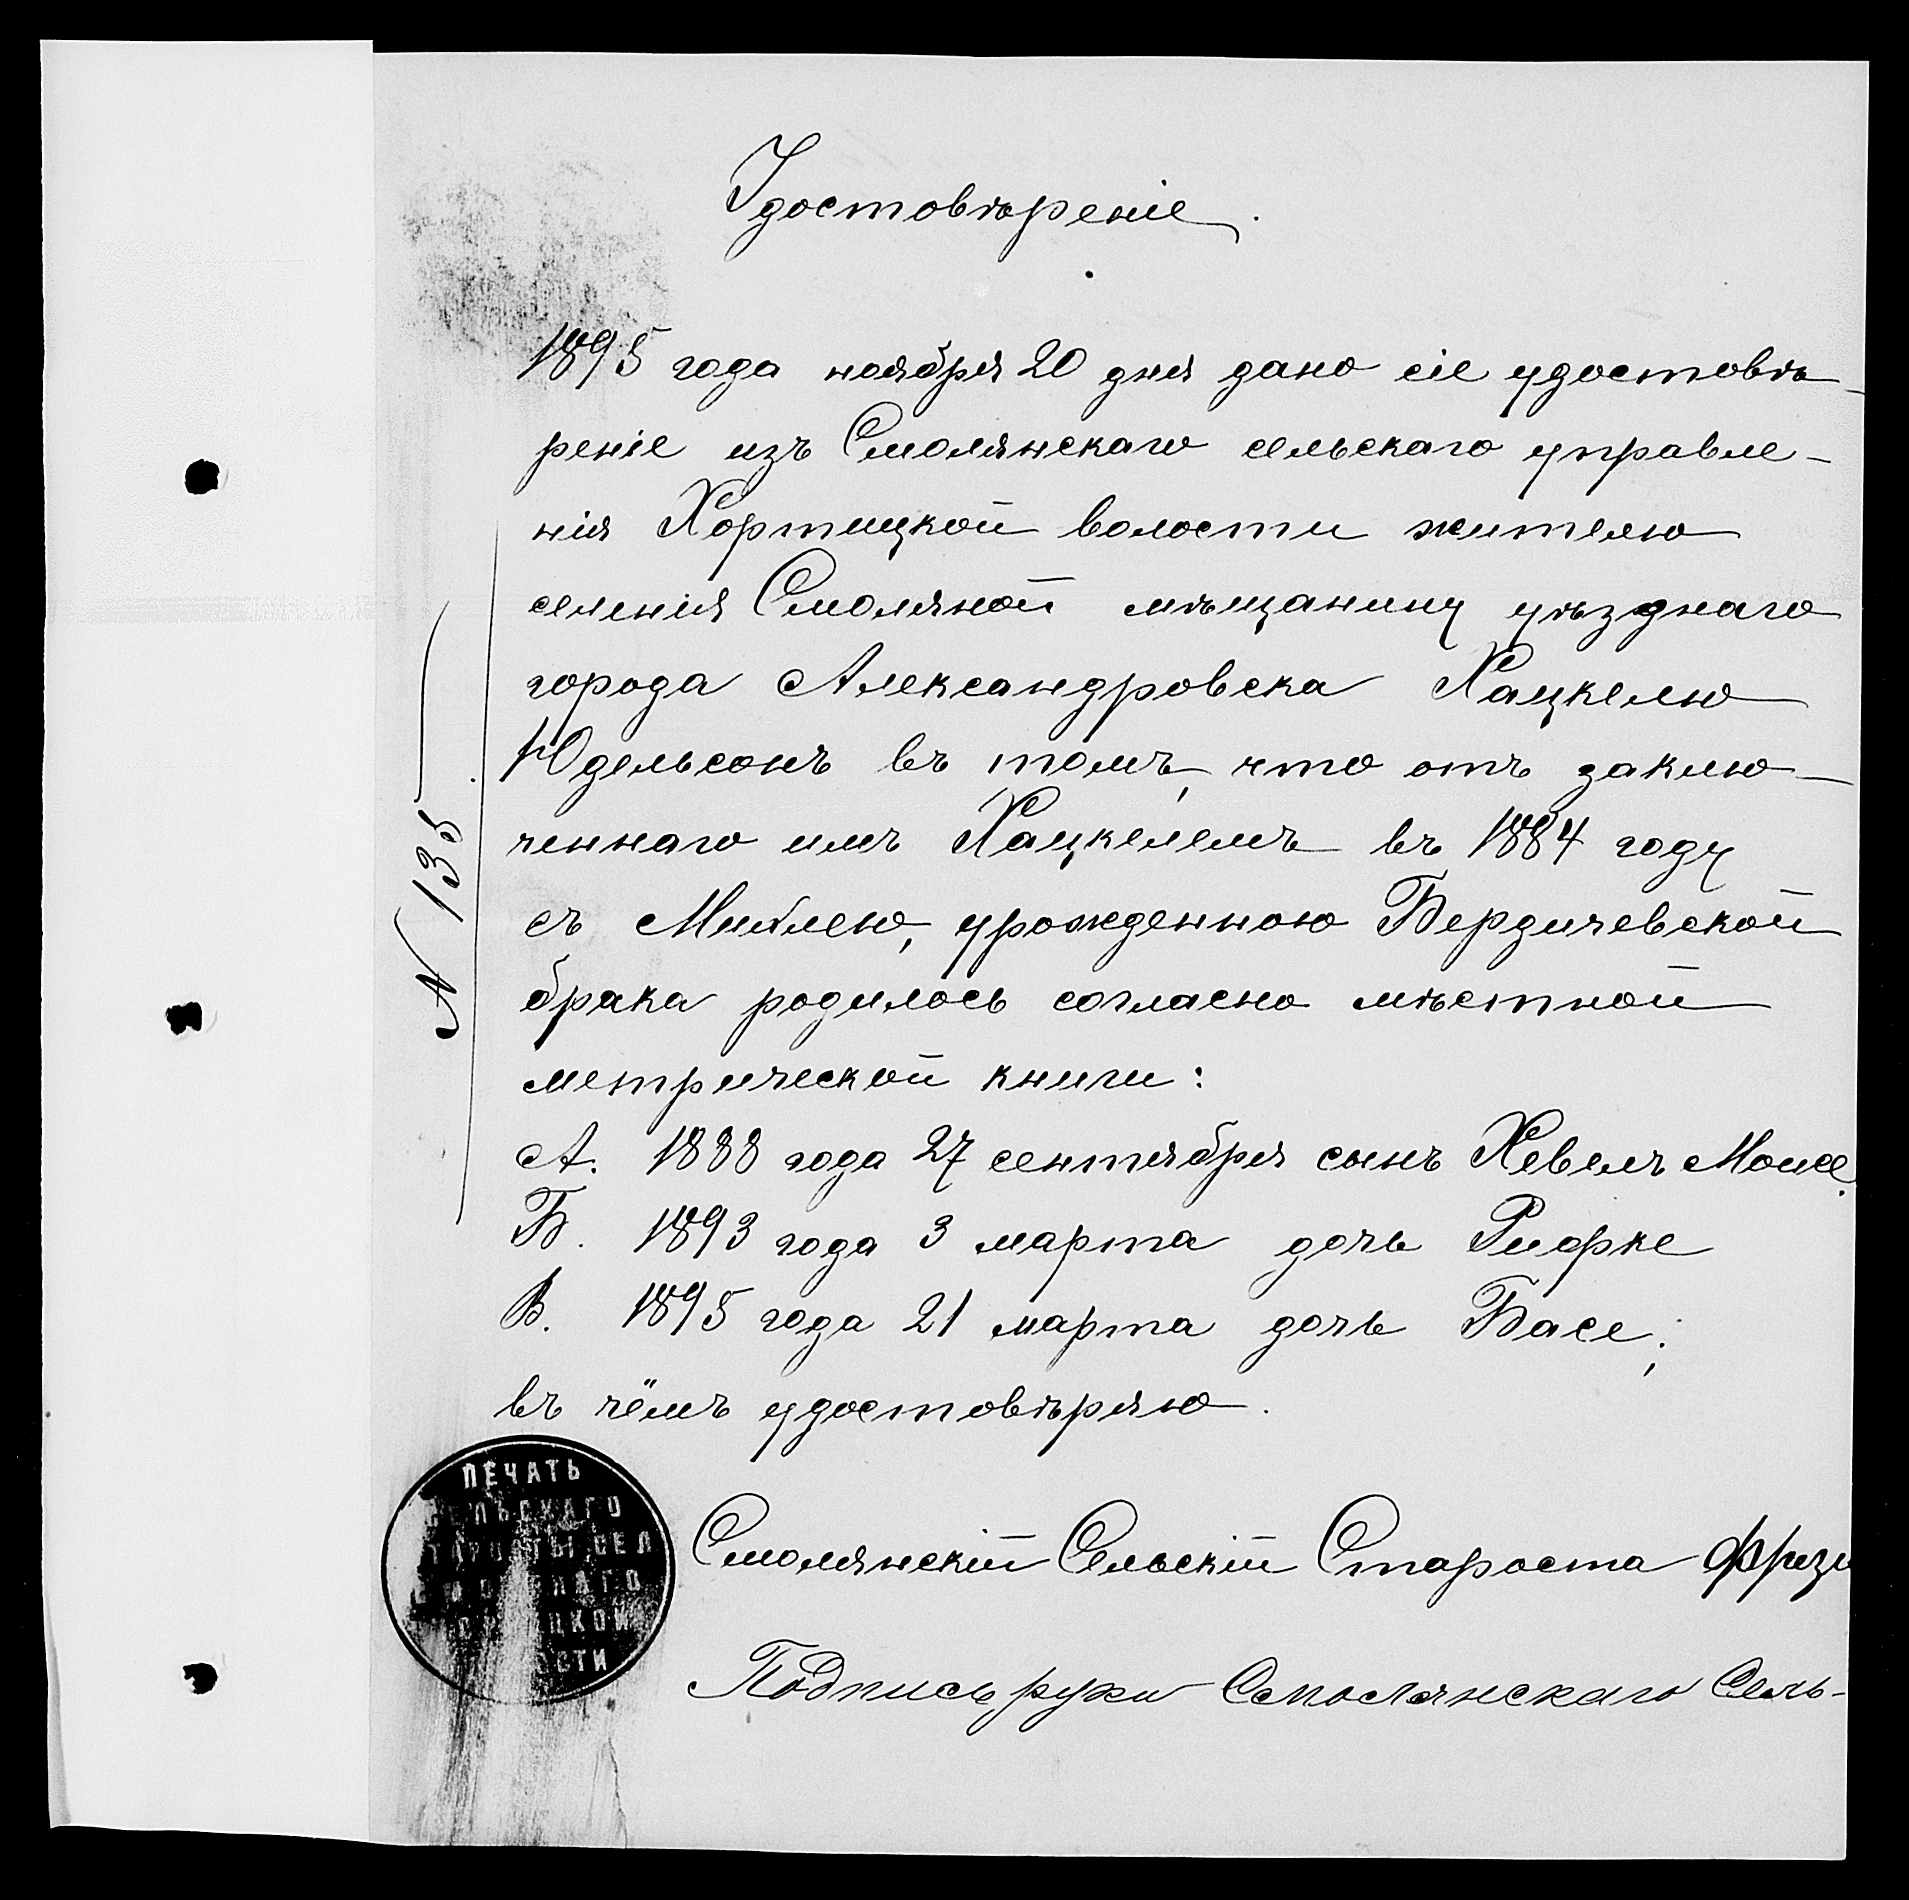 Удостовѣреніе.
1895 года ноября 20 дня дано сіе удостовѣ-
реніе изъ Смолянскаго сельскаго управле-
нія Хортицкой волости жителю
селенія Смоляной мѣщанину уѣзднаго
города Александровска Хацкелю
Юдельсонъ въ томъ, что отъ заклю-
ченнаго имъ Хацкелемъ въ 1884 году
съ Михлею, урожденною Бердичевской
брака родилось согласно мѣстной
метрической книги:
А. 1888 года 27 сентября сынъ Хевелъ Моисе.
Б. 1893 года 3 марта дочь Рифке
В. 1895 года 21 марта дочь Басе;
въ чёмъ удостовѣряю.
№ 135
ПЕЧАТЬ
СЕЛЬСКАГО
СТАРОСТЫ СЕЛ
Смолянскій Сельскій Староста
Подпись руки Смолянскаго Сель-